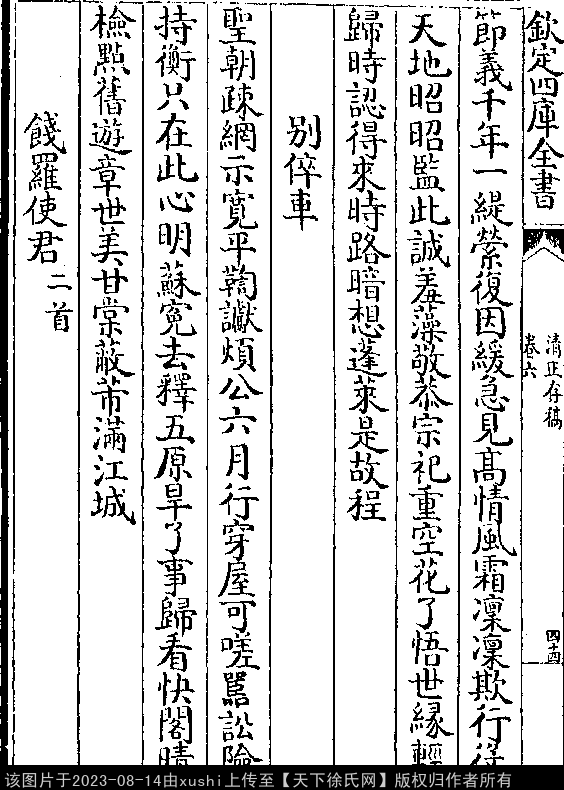 欽定四庫全書
清正存稿
卷六
四十四
節義千年一緹縈復因緩急見髙情風霜凜凜欺行
天地昭昭監此誠羞藻敬恭宗祀重空花了悟世緣輕
歸時認得來時路暗想蓬萊是故程
别倅車
聖朝疎網示寛平鞫讞煩公六月行穿屋可嗟嚚訟險
持衡只在此心明蘇寃去釋五原旱了事歸看快閣晴
檢㸃舊遊章世美甘棠蔽芾滿江城
餞羅使君二首
该图片于2023-08-14由xushi上传至【天下徐氏网】版权归作者所有